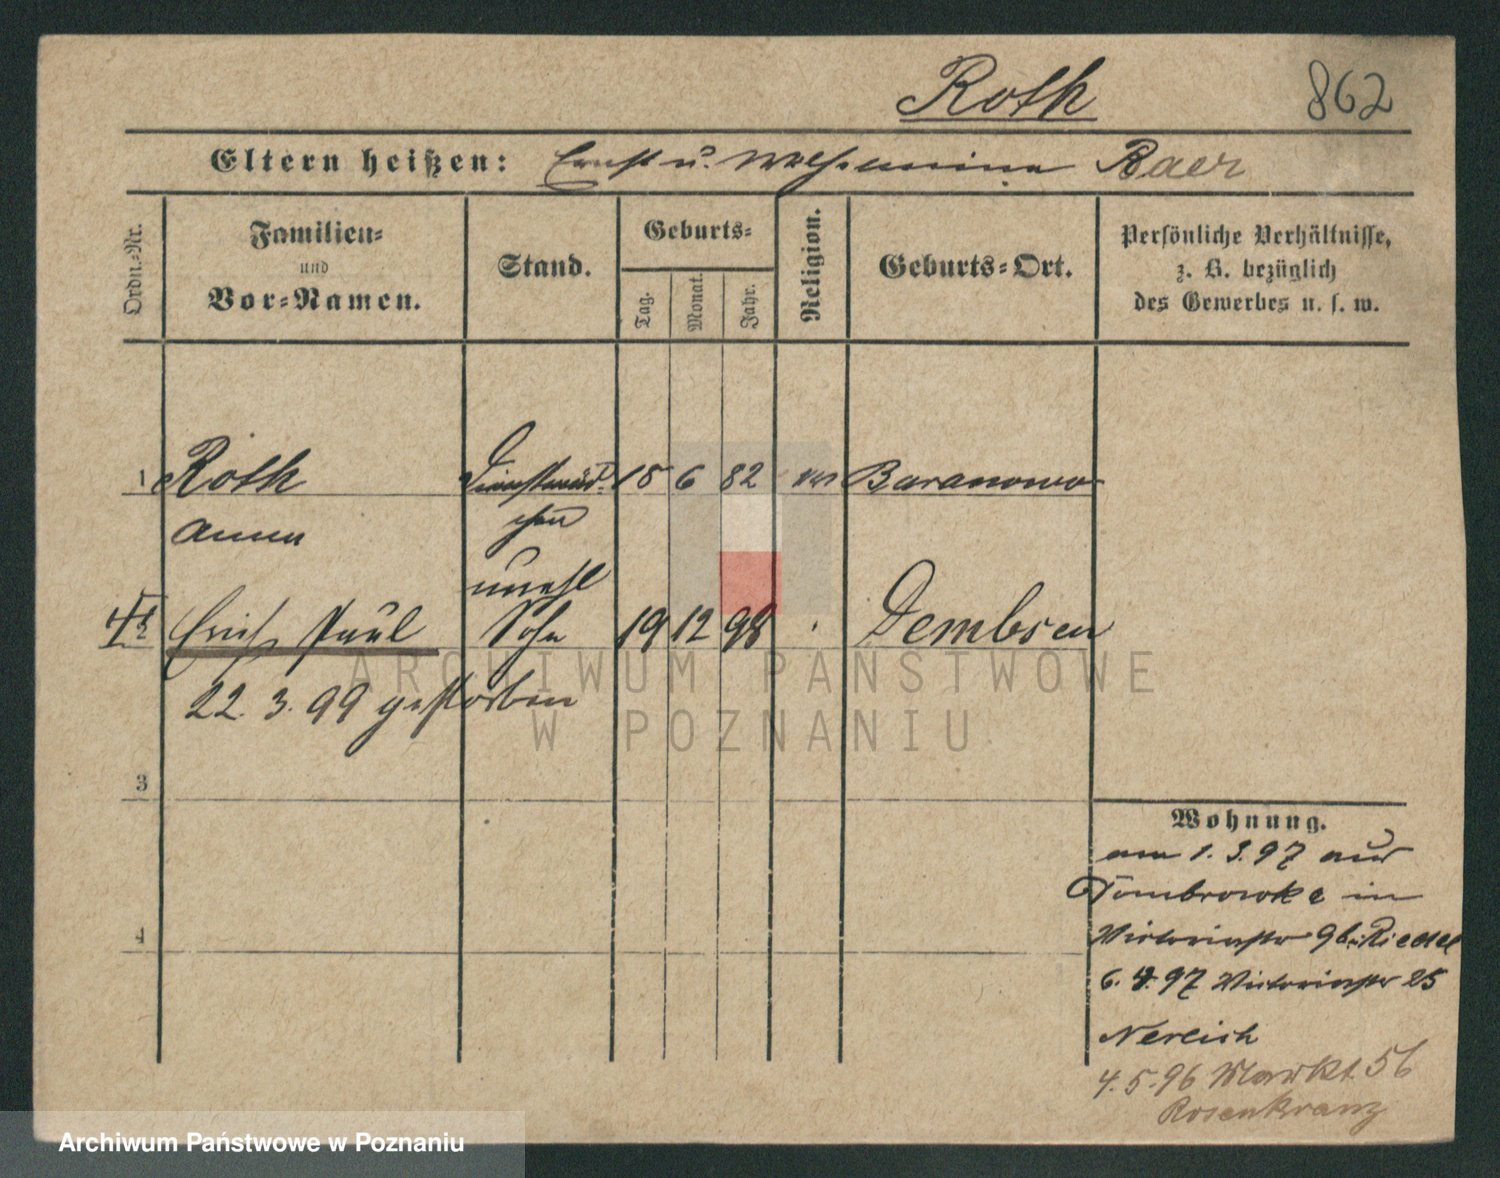 Roth 862
Eltern heißen: Ernst u. Wilhelmine Baer
Ordn.-Nr.
Familien-
und
Vor-Namen.
Stand.
Geburts-
Tag.
Monat.
Jahr.
Religion.
Geburts-Ort.
Persönliche Verhältnisse,
z. B. bezüglich
des Gewerbes u. s. w.
1 Roth Dienstmäd- 15 6 82 ev Baranowo
Anna chen
unehl
2 Erich Paul Sohn 19 12 98 Dembsen
22. 3. 99 gestorben
3
4
Wohnung.
am 1. 3. 97 aus
Dombrowke in
Victoriastr 9 b. Riedel
6. 4. 97 Victoriastr 25
Nereich
4. 5. 96 Markt 56
Rosenkranz
ARCHIWUM PAŃSTWOWE
W POZNANIU
Archiwum Państwowe w Poznaniu